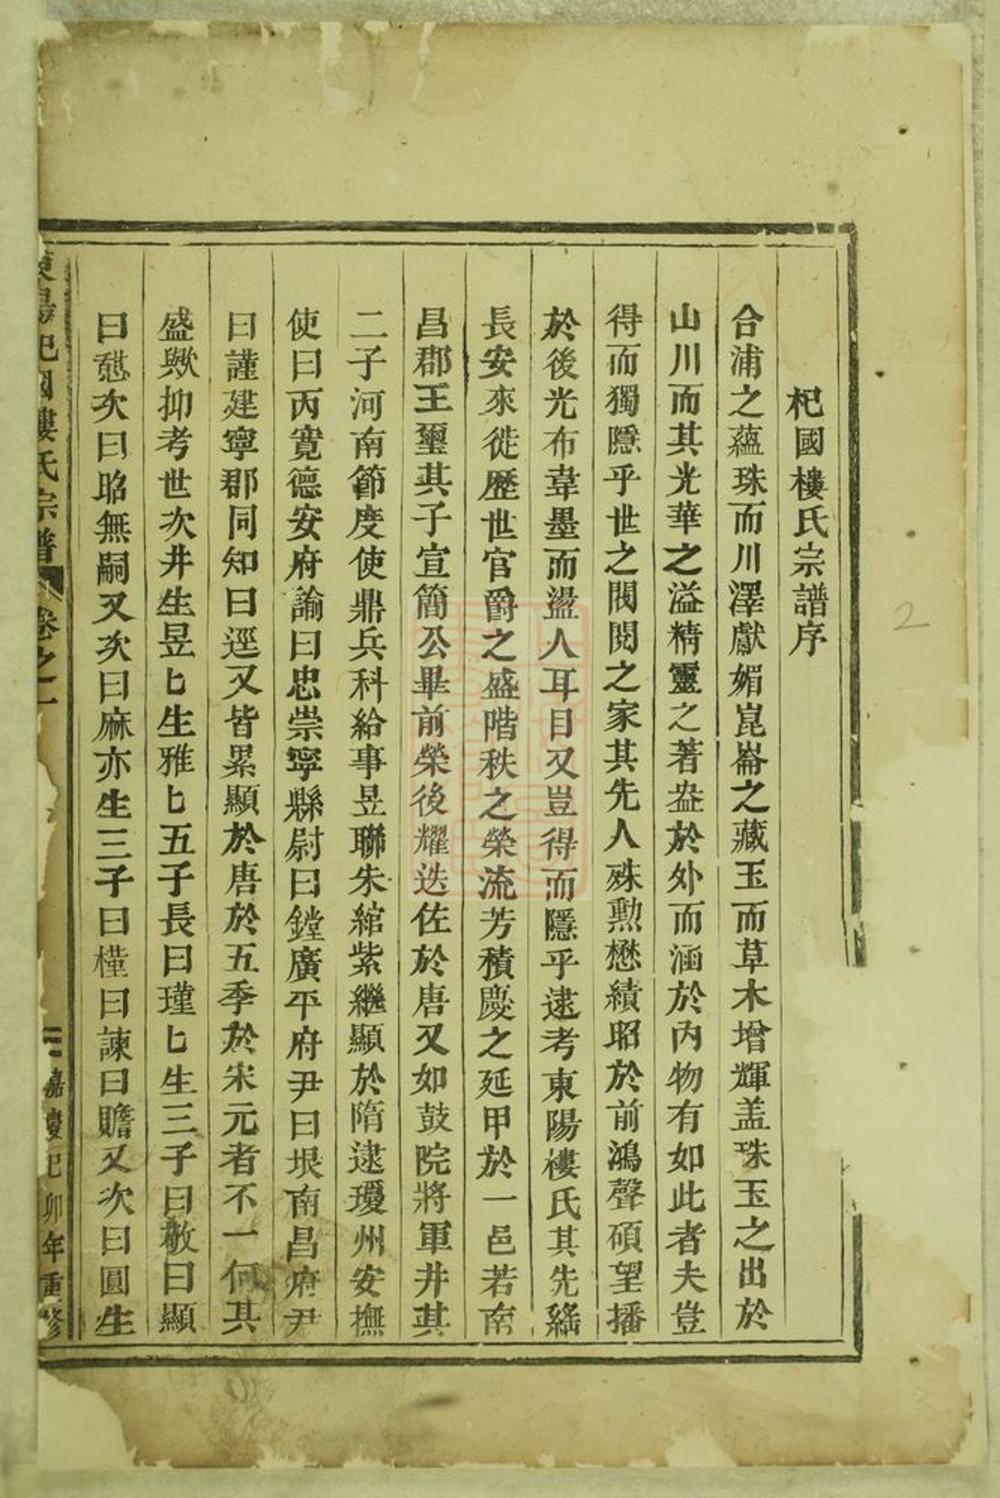 杞國樓氏宗譜序
合浦之蘊珠而川澤獻媚崑崙之藏玉而草木增輝盖珠玉之出於
山川而其光華之溢精靈之著盎於外而涵於內物有如此者夫豈
得而獨隱乎世之閥閱之家其先人殊勲懋績昭於前鴻聲碩望播
於後光布韋墨而盪人耳目又豈得而隱乎逮考東陽樓氏其先繇
長安來徙歷世官爵之盛階秩之榮流芳積慶之延甲於一邑若南
昌郡王璽其子宣簡公畢前榮後耀迭佐於唐又如鼓院將軍井其
二子河南節度使鼎兵科給事昱聯朱綰紫繼顯於隋逮瓊州安撫
使曰丙寛德安府諭曰忠崇寧縣尉曰鏜廣平府尹曰垠南昌府尹
曰謹建寧郡同知曰逕又皆累顯於唐於五季於宋元者不一何其
盛歟抑考世次井生昱匕生雅匕五子長曰瑾匕生三子曰敬曰顯
曰愻次曰昭無嗣又次曰麻亦生三子曰槿曰諫曰贍又次曰圓生
東陽杞國樓氏宗譜 卷之一 嘉慶己卯年重修
2